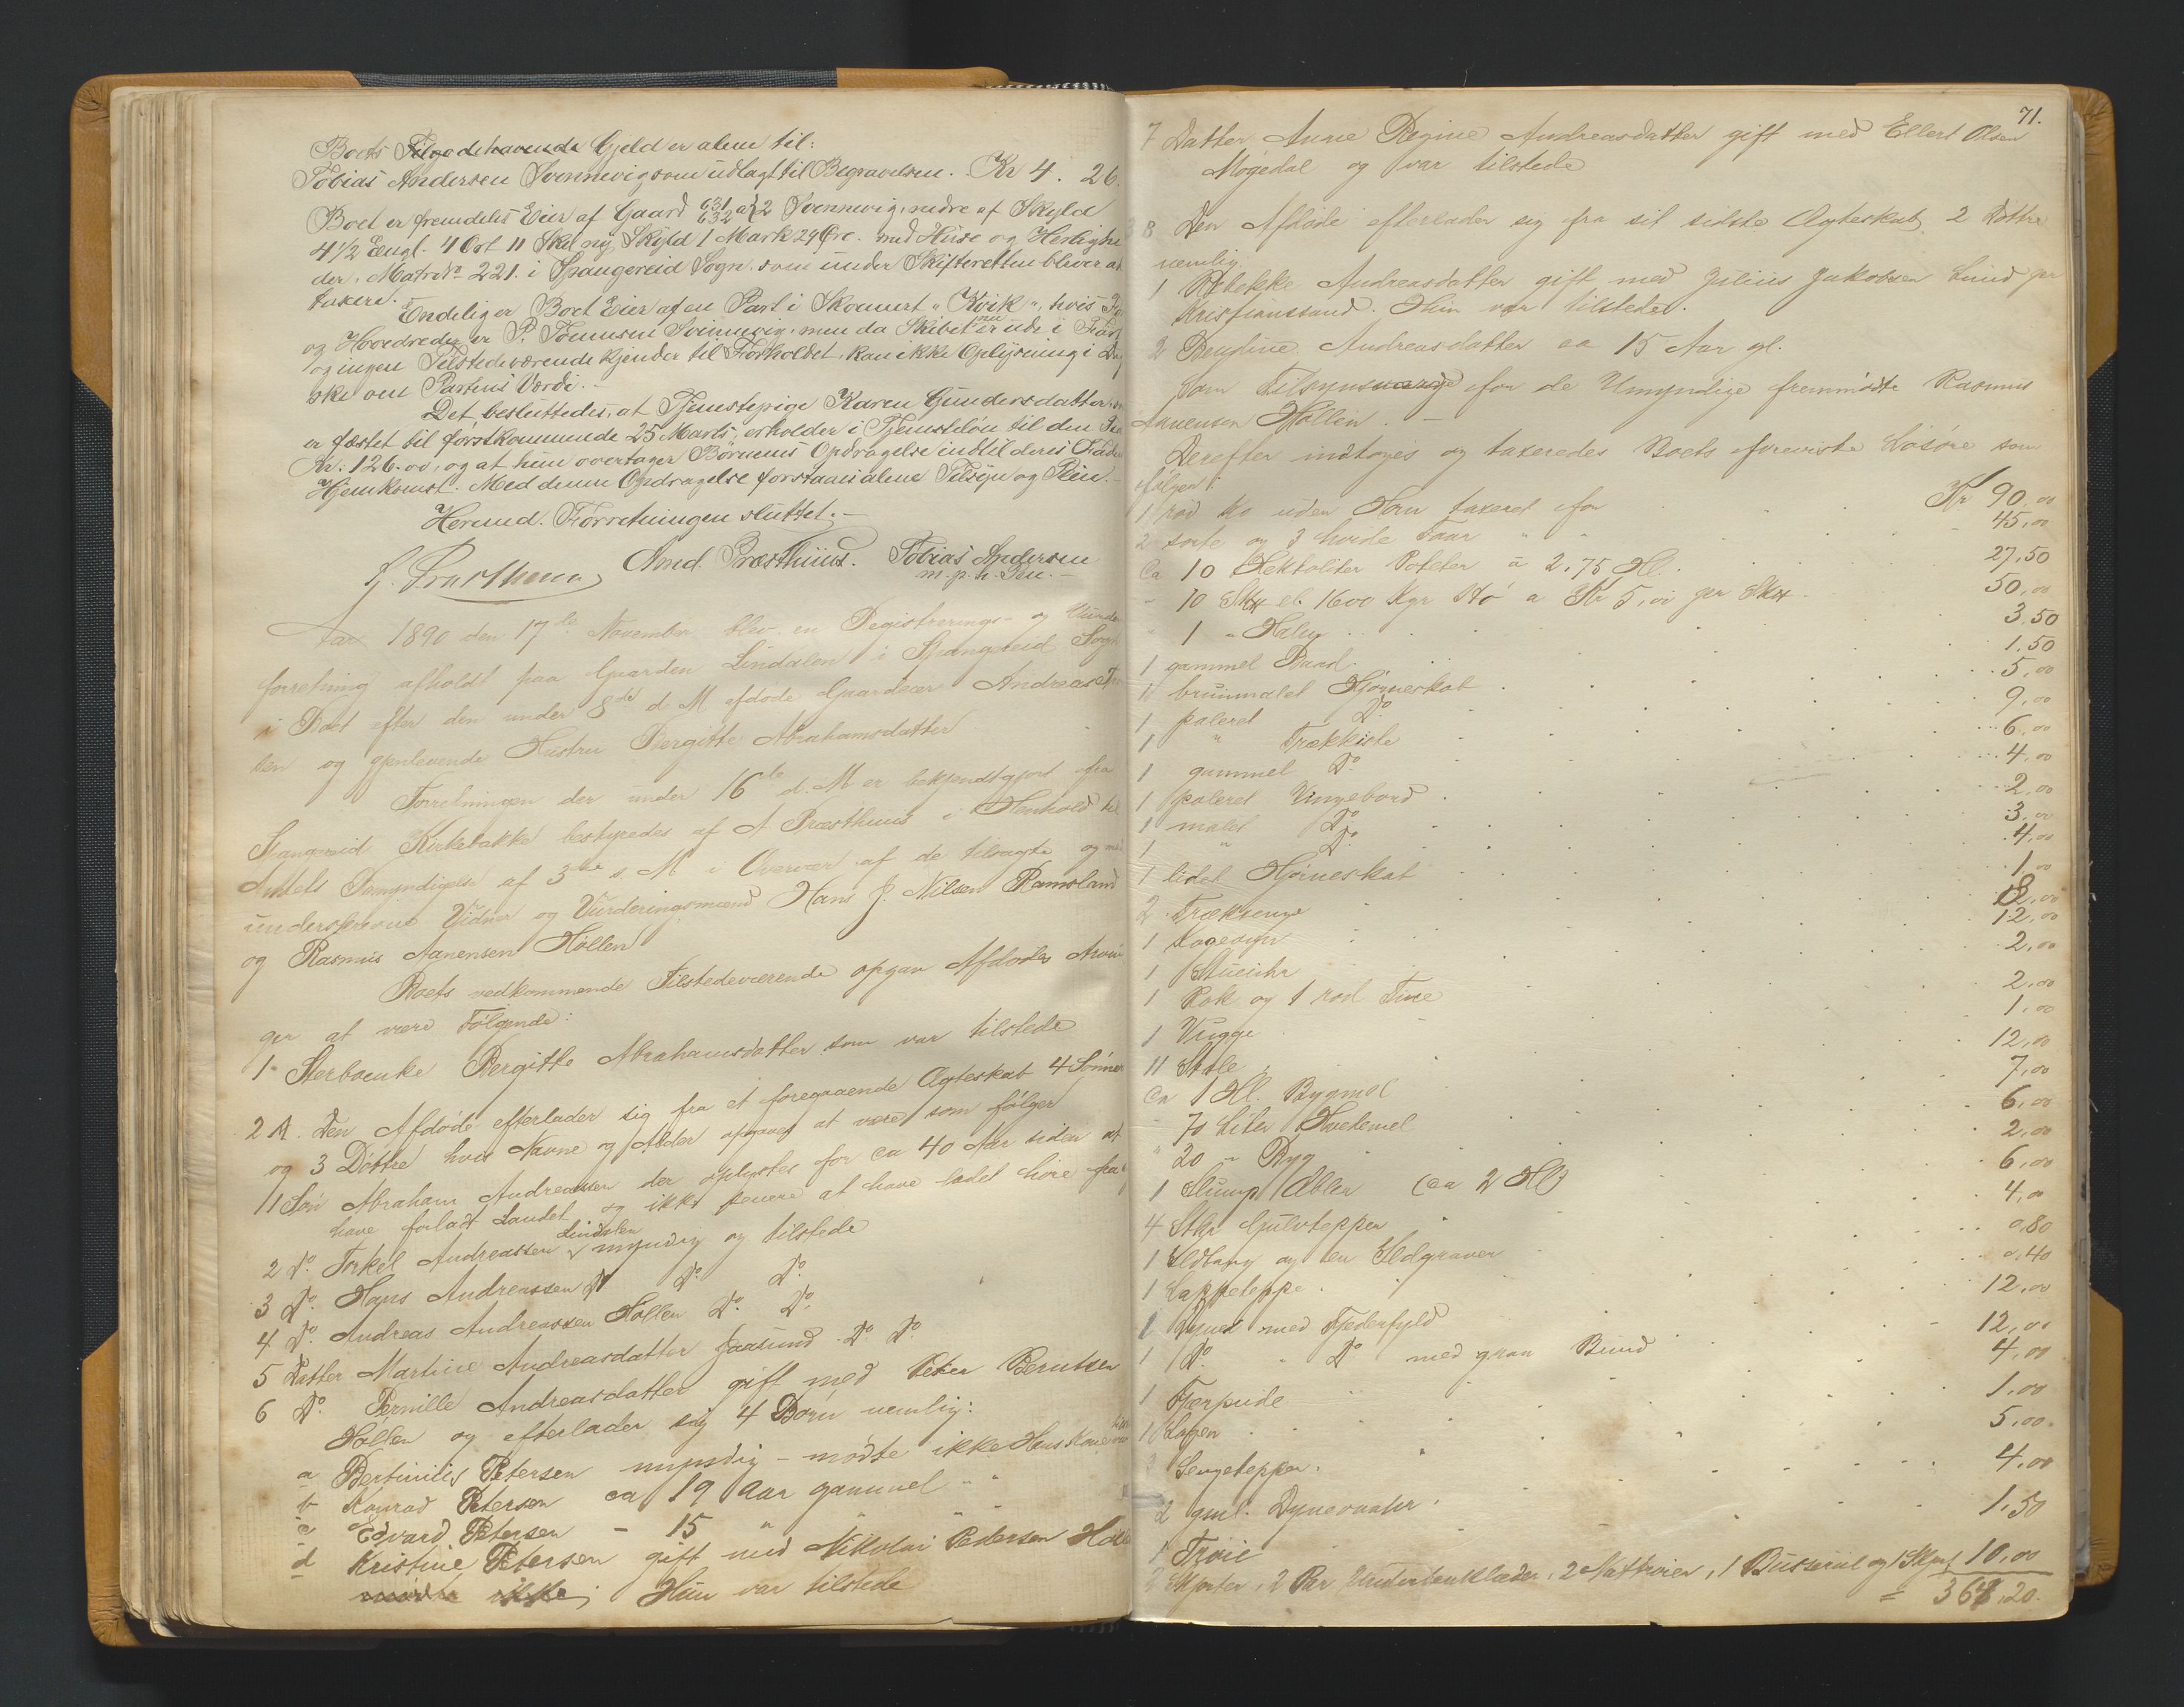 Boets Tilgodehavende Gjeld er alene til:
Tobias Andersen Svennevig som udlagt til Begravelsen. Kr 4. 26.
Boet er fremdeles Eier af Gaard 631/632 a/2 Svennevig, nedre af Skyld
4 1/2 Engl. 4 Ort 11 Skil ny Skyld 1 Mark 29 Øre. med Huse og Herlighe
der, Matr No 221. i Spangereid Sogn. som under Skifteretten bliver at
taxere.
Endelig er Boet Eier af en Part i Skonnert "Kvik", hvis
og Hovedreder er P. Tønnesen Svennevig, men da Skibet nu er ude i Fart
og ingen Tilstedeværende kjender til Forholdet, kan ikke Oplysning i Dag
ske om Partens Værdi.-
Det besluttedes, at Tjenestepige Karen Gundersdatter, som
er fæstet til førstkommende 25 Marts, erholder i Tjenesteløn til den
Kr. 126.00, og at hun overtager Børnenes Opdragelse indtil deres Faders
Hjemkomst. Med denne Opdragelse forstaaes alene Tilsyn og Pleie.-
Hermed. Forretningen sluttet.-
Amd. Præsthuus. Tobias Andersen
m. p. h. Pen.-
Aar 1890 den 17de November blev en Registrerings- og Vurder
forretning afholdt paa Gaarden Lindalen i Spangereid Sogn
i Boet efter den under 8de d. M. afdøde Gaardeier Andreas
sen og gjenlevende Hustru Bergitte Abrahamsdatter
Forretningen der under 16de d. M er bekjendtgjort fra
Spangereid Kirkebakke bestyredes af A. Præsthuus i Henhold til
Amtets Bemyndigelse af 3die s. M i Overvær af de tilsagte og med
underskrevne Vidner og Vurderingsmænd Hans J. Nilsen Ramsland
og Rasmus Aanensen Høllen
Boets vedkommende Tilstedeværende opgav Afdødes Arvin
ger at være Følgende:
1 Sterboenke Bergitte Abrahamsdatter som var tilstede
2 A. Den Afdøde efterlader sig fra et foregaaende Ægteskab 4 Sønner
og 3 Døttre hvis Navne og Alder opgaves at være som følger
1 1 Søn Abraham Andreassen der oplystes for ca 40 Aar siden at
have forladt Landet og ikke senere at have ladet høre fra
2 Do. Torkel Andreassen Lindalen myndig og tilstede
3 Do. Hans Andreassen Do Do. Do.
4 Do. Andreas Andreassen Høllen Do. Do.
5 Datter Martine Andreasdatter Jaasund Do. Do.
6 Do. Pernille Andreasdatter gift med Peter Berntsen
Høllen og efterlader sig 4 Børn nemlig:
a Bertinius Petersen myndig - mødte ikke Hans Kone
b Konrad Petersen ca 19 Aar gammel
c Edvard Petersen - 15 " "
d Kristine Petersen gift med Nikolai Pedersen
mødte ikke; Hun var tilstede
71.
7 Datter Anne Regine Andreasdatter gift med Ellert Olsen
Møgedal og var tilstede
B Den Afdøde efterlader sig fra sit sidste Ægteskab 2 Døttre
nemlig.
1 Rebekke Andreasdatter gift med Julius Jakobsen Lund pr
Kristianssand. Hun var tilstede.
2 Bendine Andreasdatter ca 15 Aar gl.
Som Tilsynsværge for de Umyndige fremmødte Rasmus
Aanensen Høllen.-
Derefter indtoges og taxeredes Boets foreviste Løsøre som
følger:
1 rød Ko uden Horn taxeret for Kr 90,00
2 sorte og 3 hvide Faar " " 45,00
Ca 10 Hektoliter Poteter à 2,75 Hl. 27,50
" 10 Sk℔ el. 1600 Kgr Hø a Kr 5,00 pr Sk℔ 50,00
" 1 " Halm 3,50
1 gammel Baad 1,50
1 brunmalet Hjørneskab 5,00
1 poleret Do 9,00
1 " Trækkiste 6,00
1 gammel Do 4,00
1 poleret Vingebord 2,00
1 malet Do. 3,00
1 " Do. 4,00
1 lidet Hjørneskab 1,00
2 Træksenge 8,00
1 Kogeovn 12,00
1 Stueuhr 2,00
1 Rok og 1 rød Tine 2,00
1 Vugge 1,00
11 Stole 12,00
Ca 1 Hl. Bygmel 7,00
" 70 Liter Hvedemel 6,00
" 20 " Byg 2,00
1 Slump Æbler (ca 2 Hl) 6,00
4 Stkr Gulvtepper 4,00
1 Ildtang og en Ildgraver 0,80
1 Lappeteppe 0,40
1 Dyne med Fjederfyld 12,00
1 Do. " Do med graa Bund 12,00
1 Fjærpude 4,00
1 Lagen 1,00
Sengetepper 5,00
2 gml. Dynevaahr 4,00
1 Trøie 1,50
2 Skjorter, 2 Par Underbenklæder, 2 Nattrøier, 1 Busserul og 1 Skjørt 10,00
= 364,20.